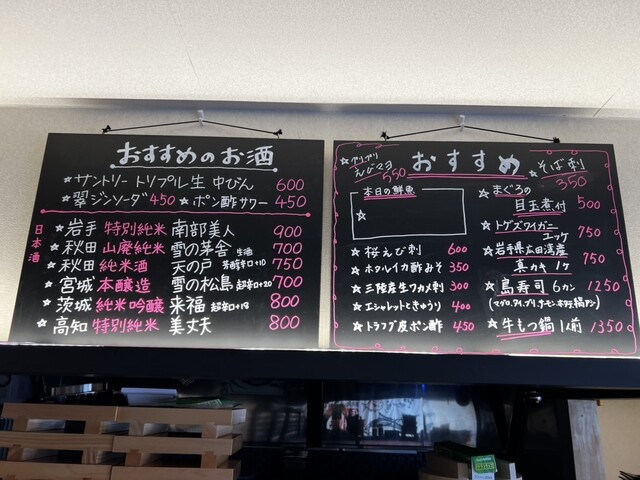 おすすめのお酒
☆サントリー トリプル生 中びん 600
☆翠ジンソーダ 450 ☆ポン酢サワー 450
日本酒
☆岩手 特別純米 南部美人 900
☆秋田 山廃純米 雪の茅舎 生酒 700
☆秋田 純米酒 天の戸 芳醇辛口+10 750
☆宮城 本醸造 雪の松島 超辛口+20 700
☆茨城 純米吟醸 来福 超辛口+18 800
☆高知 特別純米 美丈夫 800
☆プリプリ
えびマヨ
550
おすすめ
☆そば刺
350
本日の鮮魚
☆
☆桜えび刺 600
☆ホタルイカ酢みそ 350
☆三陸産生ワカメ刺 300
☆エシャレットときゅうり 400
☆トラフグ皮ポン酢 450
☆まぐろの
目玉煮付 500
☆トゲズワイガニ
ユッケ 750
☆岩手県広田湾産
真カキ 1ケ 750
☆島寿司 6カン 1250
☆牛もつ鍋 1人前 1350